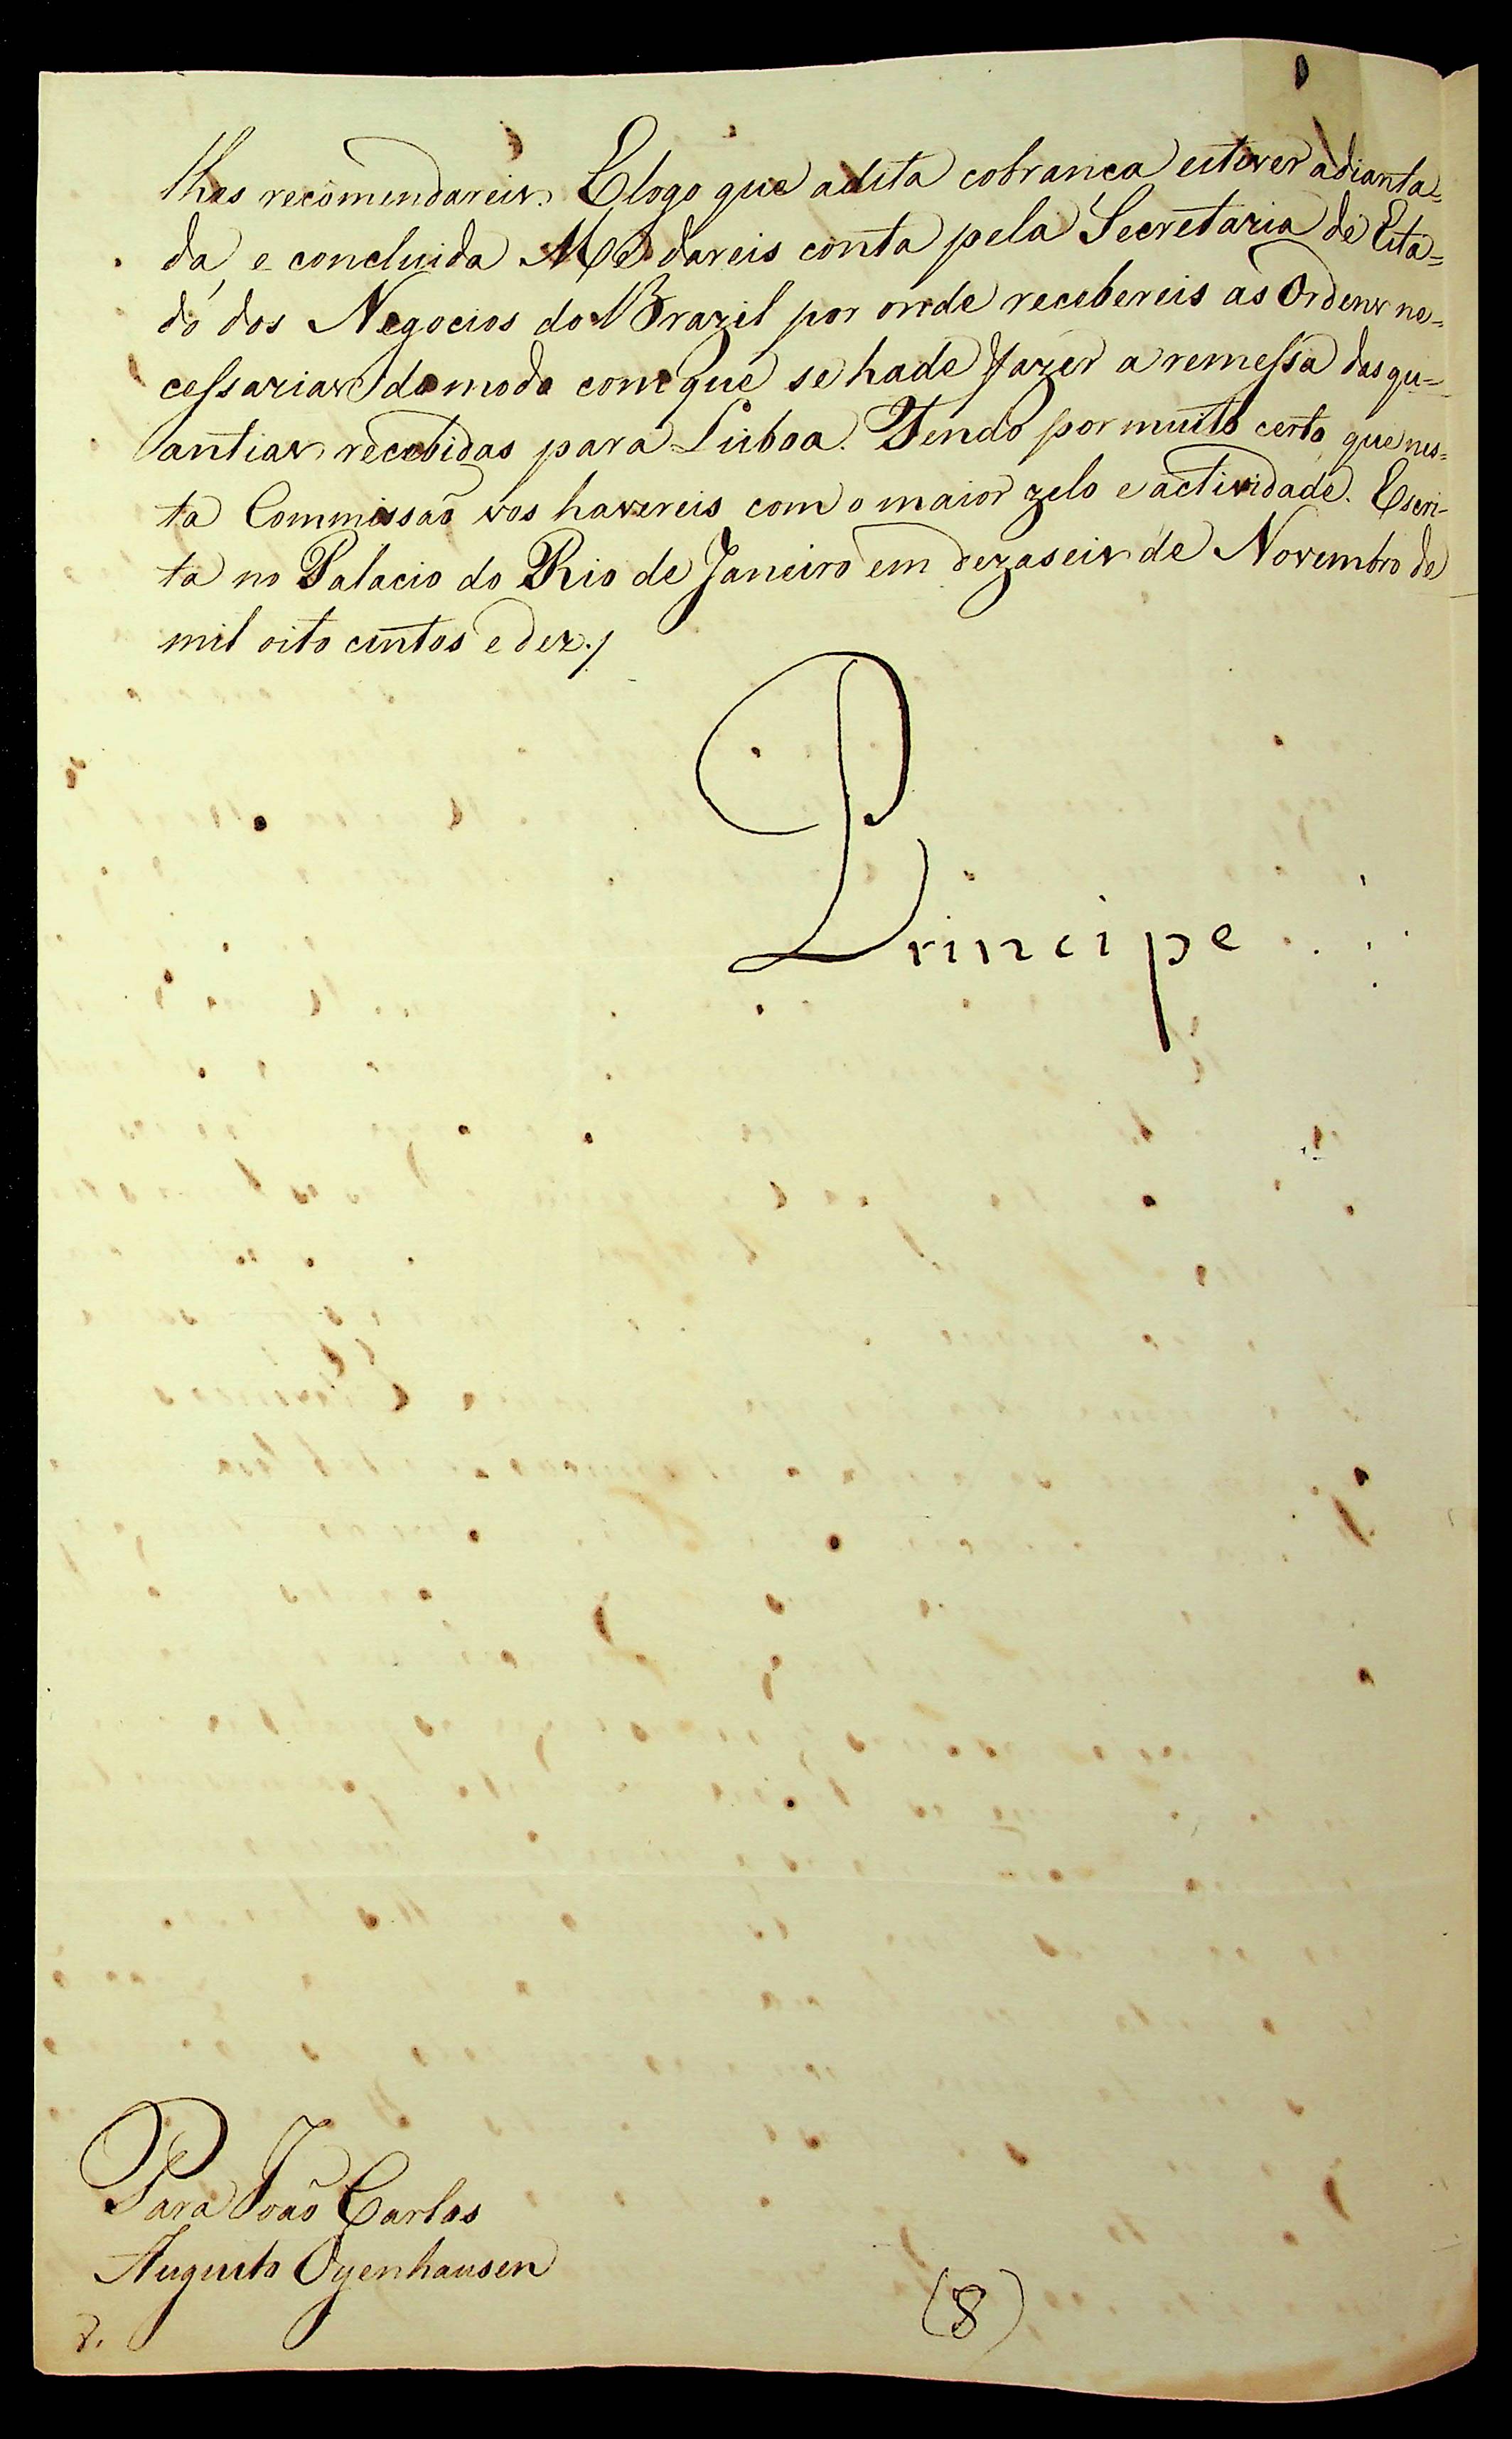 lhes recomendareis. Elogo que adita cobranca estiver adianta=
da, e concluida Me dareis conta pela Secretaria de Esta=
do dos Negocios do Brazil por onde recebereis as Ordens ne=
cessarias do modo com que se hade fazer a remessa das qu=
antias recebidas para Lisboa. Tendo por muito certo, que nes=
ta Commissaõ vos havereis com o maior zelo e actividade. Escri-
ta no Palacio do Rio de Janeiro em dezaseis de Novembro de
mil oito centos e dez./
Principe
Para Joaõ Carlos
Augusto Oyenhausen
(8)